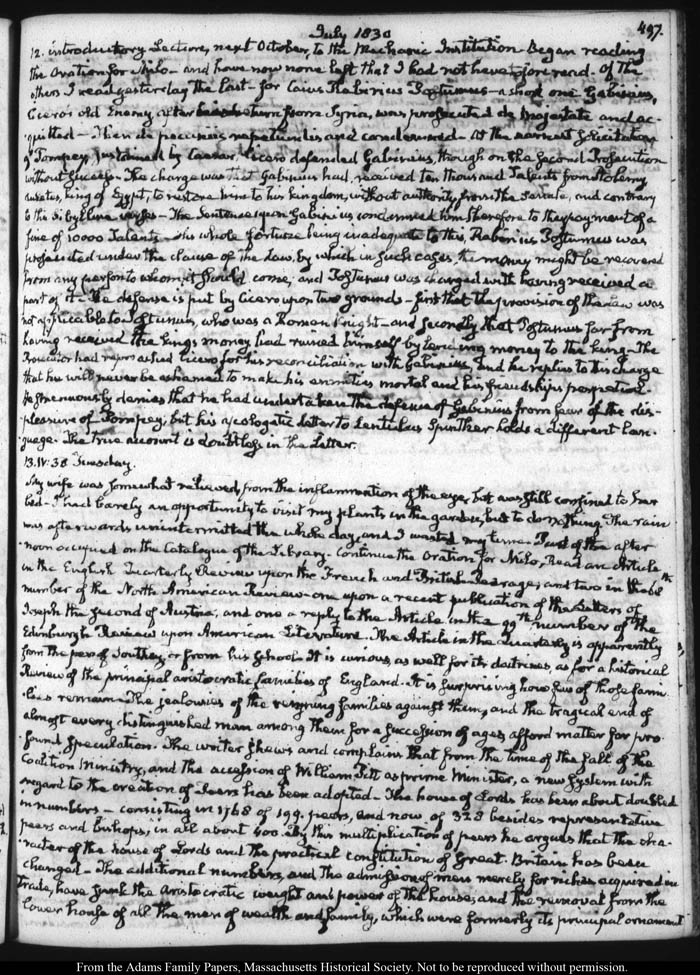 July 1830
497.
12. introductory Lecture, next October, to the Mechanic Institution. Began reading
the Oration for Milo— and have now none left that I had not heretofore read. Of the
others I read yesterday the last— for Caius Rabirius Postumus— a short one. Gabinius,
Cicero's old Enemy, after his return from Syria, was prosecuted de Majestate and ac-
quitted— Then de pecuniis repetundis and condemned— At the earnest solicitation
of Pompey, sustained by Caesar, Cicero defended Gabinius, though on the second Prosecution
without success. The charge was that Gabinius had received ten thousand Talents from Ptolemy
Auletes, king of Egypt, to restore him to his kingdom, without authority from the Senate, and contrary
to the Sibylline verses— The Sentence upon Gabinius condemned him therefore to the payment of a
fine of 10000 Talents— his whole fortune being inadequate to this, Rabirius Postumus was
prosecuted under the clause of the Law, by which in such cases the money might be recovered
from any person to whom it should come, and Postumus was charged with having received a
part of it— The defense is put by Cicero upon two grounds— first that the provision of the Law was
not applicable to Postumus, who was a Roman knight— and secondly that Postumus far from
having received the kings money had ruined himself by lending money to the king— The
Prosecutor had reproached Cicero for his reconciliation with Gabinius, and he replies to this charge
that he will never be ashamed to make his enmities mortal and his friendships perpetual.
He strenuously denies that he had undertaken the defense of Gabinius from fear of the dis-
pleasure of Pompey; but his apologetic letter to Lentulus Spinther holds a different lan-
guage. The true account is doubtless in the Letter.
13. IV:30 Tuesday.
My wife was somewhat relieved from the inflammation of the eye, but was still confined to her
bed— I had barely an opportunity to visit my plants in the garden, but to do nothing. The rain
was afterwards unintermitted the whole day, and I wasted my time. Part of the after-
noon occupied on the Catalogue of the Library. Continue the Oration for Milo, Read an Article
in the English Quarterly Review upon the French and British Peerage; and two in the 68th
number of the North American Review— one upon a recent publication of the Letters of
Joseph the second of Austria, and one a reply to the Article in the 99th number of the
Edinburgh Review upon American Literature. The Article in the Quarterly is apparently
from the pen of Southey, or from his school. It is curious, as well for its doctrines, as for a historical
Review of the principal aristocratic families of England. It is surprising how few of those fami-
lies remain. The jealousies of the reigning families against them, and the tragical end of
almost every distinguished man among them for a succession of ages, afford matter for pro-
found speculation. The writer shews and complains that from the time of the fall of the
Coalition Ministry, and the accession of William Pitt as prime Minister, a new system with
regard to the creation of Peers has been adopted— The house of Lords has been about doubled
in numbers— consisting in 1768 of 199. peers, and now of 328 besides representative
peers and bishops, in all about 400. By this multiplication of peers he argues that the cha-
racter of the house of Lords and the practical constitution of Great Britain has been
changed— The additional numbers, and the admission of men merely for riches acquired in
Trade, have sunk the aristocratic weight and power of the house, and the removal from the
lower house of all the men of wealth and family, which were formerly its principal ornament
From the Adams Family Papers, Massachusetts Historical Society. Not to be reproduced without permission.